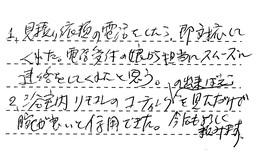 1. 見積り応援の電話をしたら、即対応して
くれた。電話受付の娘が担当にスムーズに
連絡をしてくれたと思う。
2. 浴室内リモルのコーティングを見ただけで
腕が良いと信用できた。今たもよろしく
お願します。